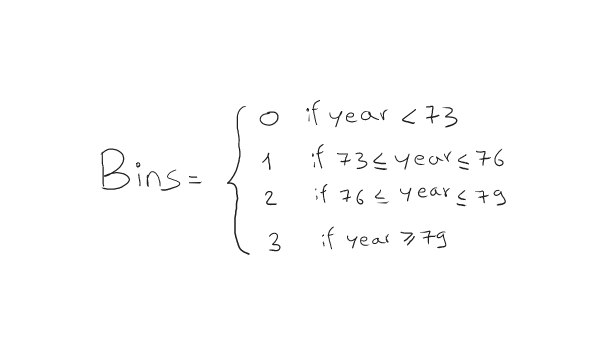 Bins =
0 if year < 73
1 if 73 ≤ year ≤ 76
2 if 76 ≤ year ≤ 79
3 if year ≥ 79